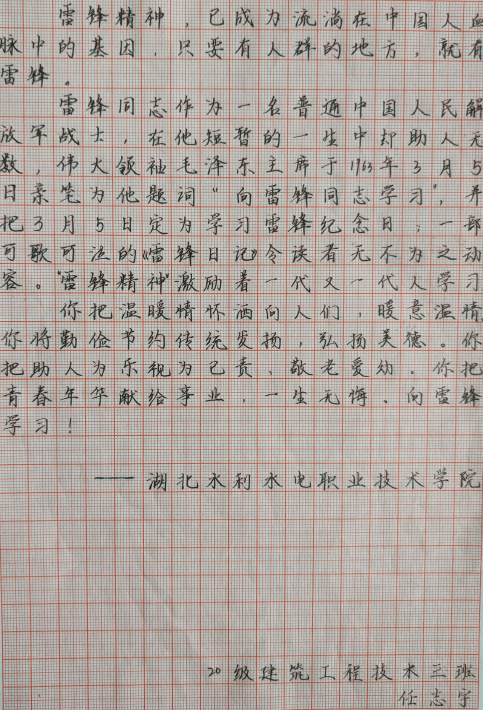 雷锋精神，已成为流淌在中国人血
脉中的基因，只要有人群的地方，就有
雷锋。
雷锋同志作为一名普通中国人民解
放军战士，在他短暂的一生中却助人无
数，伟大领袖毛泽东主席于1963年3月5
日亲笔为他题词“向雷锋同志学习”，并
把3月5日定为学习雷锋纪念日；一部
可歌可泣的《雷锋日记》令读者无不为之动
容。“雷锋精神”激励着一代又一代人学习
你把温暖情怀洒向人们，暖意温情
你将勤俭节约传统发扬，弘扬美德。你
把助人为乐视为己责，敬老爱幼。你把
青春年华献给事业，一生无悔。向雷锋
学习！
——湖北水利水电职业技术学院
20级建筑工程技术三班
任志宇